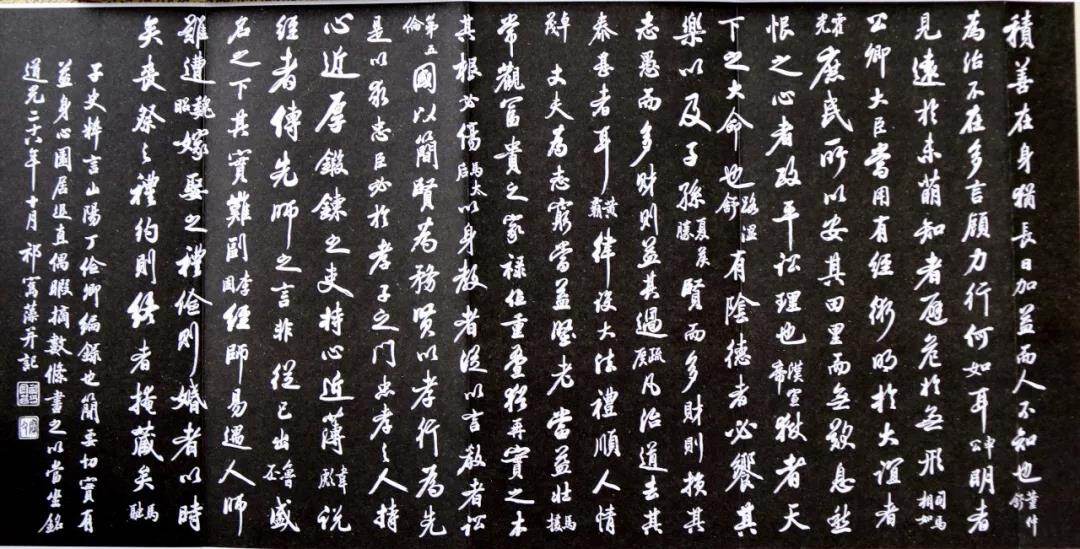 積善在身猶長日加益而人不知也董仲舒
為治不在多言顧力行何如耳申公明者
見遠於未萌知者避危於无形司馬相如
公卿大臣當用有經術明於大誼者
霍光庶民所以安其田里而无歎息愁
恨之心者政平訟理也漢宣帝獄者天
下之大命也路溫舒有陰德者必饗其
樂以及子孫夏侯勝賢而多財則損其
志愚而多財則益其過疏廣凡治道去其
泰甚者耳黃霸律設大法禮順人情
卓茂丈夫為志窮當益堅老當益壯馬援
常觀富貴之家祿位重疊猶再實之木
其根必傷馬太后以身教者從以言教者訟
第五倫國以簡賢為務賢以孝行為先
是以求忠臣必於孝子之門忠孝之人持
心近厚鍛鍊之吏持心近薄韋彪說
經者傳先師之言非從己出魯丕盛
名之下其實難副李固經師易遇人師
難遭魏昭嫁娶之禮儉則婚者以時
矣喪祭之禮約則終者掩藏矣馬融
子史粹言山陽丁儉卿編錄也簡要切實有
益身心園居退直偶暇摘數條書之以當坐銘
道光二十六年十月祁寯藻并記